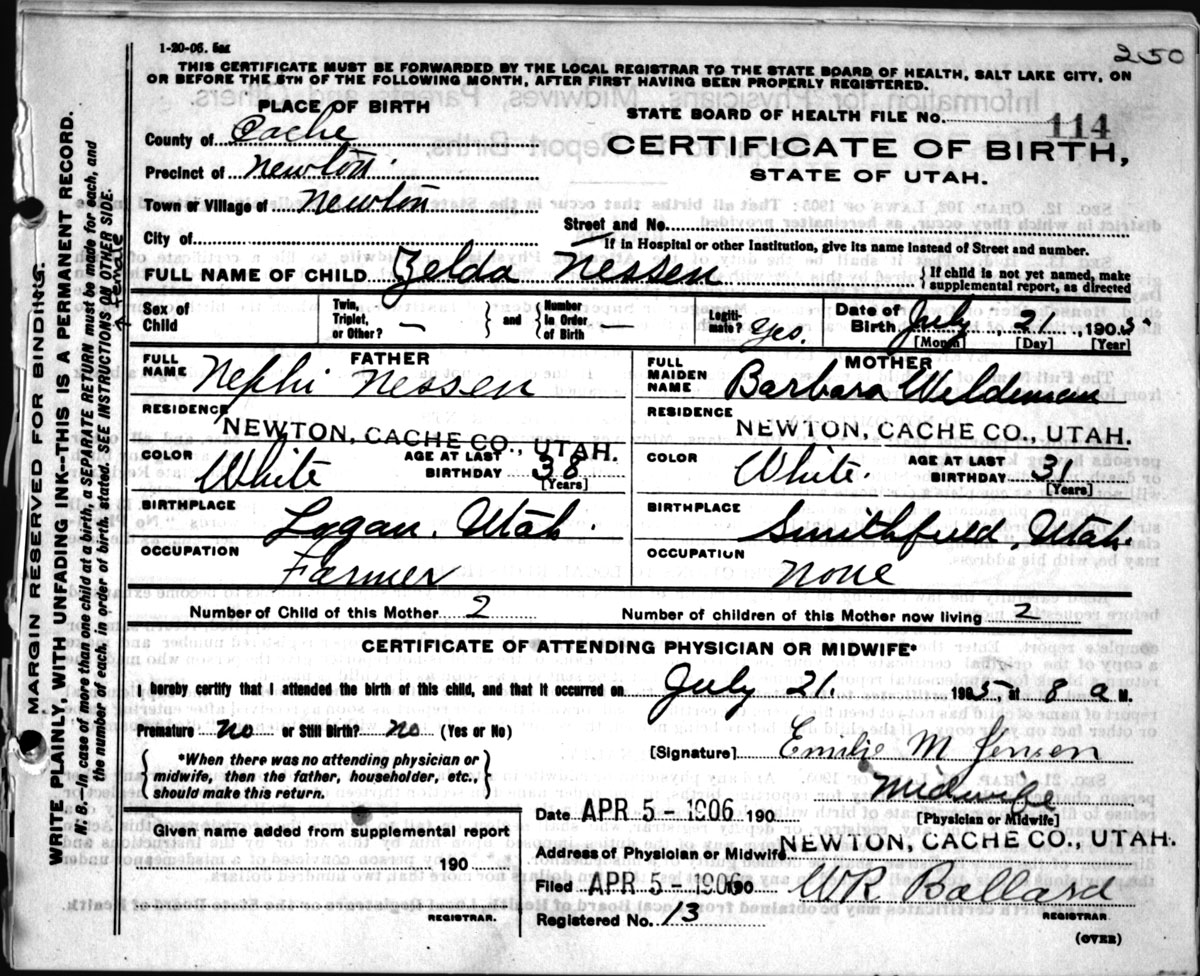 250
1-20-06. 5m
THIS CERTIFICATE MUST BE FORWARDED BY THE LOCAL REGISTRAR TO THE STATE BOARD OF HEALTH, SALT LAKE CITY, ON
OR BEFORE THE 5TH OF THE FOLLOWING MONTH, AFTER FIRST HAVING BEEN PROPERLY REGISTERED.
PLACE OF BIRTH
STATE BOARD OF HEALTH FILE NO. 114
County of Cache
CERTIFICATE OF BIRTH,
Precinct of Newton
STATE OF UTAH.
Town or Village of Newton
Street and No.
City of
If in Hospital or other Institution, give its name instead of Street and number.
FULL NAME OF CHILD Zelda Nessen { If child is not yet named, make supplemental report, as directed
Sex of Child Female Twin, Triplet, or Other? — } and { Number in Order of Birth — Legitimate? Yes. Date of Birth July 21, 1905.
[Month] [Day] [Year]
FATHER MOTHER
FULL NAME Nephi Nessen FULL MAIDEN NAME Barbara Weldeman
RESIDENCE NEWTON, CACHE CO., UTAH. RESIDENCE NEWTON, CACHE CO., UTAH.
COLOR White AGE AT LAST BIRTHDAY 38 [Years] COLOR White. AGE AT LAST BIRTHDAY 31 [Years]
BIRTHPLACE Logan, Utah. BIRTHPLACE Smithfield, Utah.
OCCUPATION Farmer OCCUPATION None
Number of Child of this Mother 2 Number of children of this Mother now living 2
CERTIFICATE OF ATTENDING PHYSICIAN OR MIDWIFE*
I hereby certify that I attended the birth of this child, and that it occurred on July 21. 1905, at 8 a M.
Premature no or Still Birth? no (Yes or No)
[Signature] Emilie M Jensen
*When there was no attending physician or
midwife, then the father, householder, etc.,
should make this return.
Midwife
[Physician or Midwife]
Date APR 5 - 1906 190
Given name added from supplemental report
190
REGISTRAR.
Address of Physician or Midwife NEWTON, CACHE CO., UTAH.
Filed APR 5 - 1906 190 WR Ballard
REGISTRAR
Registered No. 13
(OVER)
MARGIN RESERVED FOR BINDING.
WRITE PLAINLY, WITH UNFADING INK--THIS IS A PERMANENT RECORD.
N. B. In case of more than one child at a birth, a SEPARATE RETURN must be made for each, and
the number of each, in order of birth, stated. SEE INSTRUCTIONS ON OTHER SIDE.